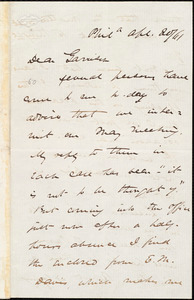 Phila Apl. 20/61
Dear Garrison
Several persons have
come to me to-day to
advise that we inter-
mit our May meeting.
My reply to them in
each case has been "it
is not to be thought of."
But coming into the office
just now after a half
hours absence I find
the enclosed from E. M.
Davis which makes me